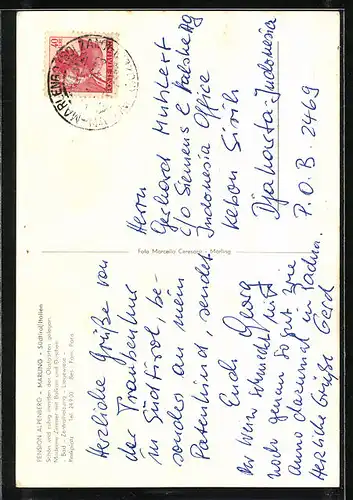 PENSION ALPENBERG - MARLING - Südtirol/Italien
Schön und ruhig inmitten der Obstgärten gelegen.
Moderne Zimmer mit Balkon und Duschen
- Bad - Zentralheizung - Liegewiese -
Parkplatz - Tel. 24930 Bes. Fam. Paris
Foto Marcello Ceresapi - Marling
POSTE ITALIANE
40
Herrn
Gerhard Muhlert
c/o Siemens & Halske AG
Indonesia Office
Kebon Sirih
Djakarta-Indonesia
P.O.B. 2469
Herzliche Grüße von
der Traubenkur
in Südtirol, be-
sonders an mein
Patenkind sendet
Euch Georg
Der Wein schmeckt
noch genau so gut wie
Anno dazumal in
Herzliche Grüße Gerd